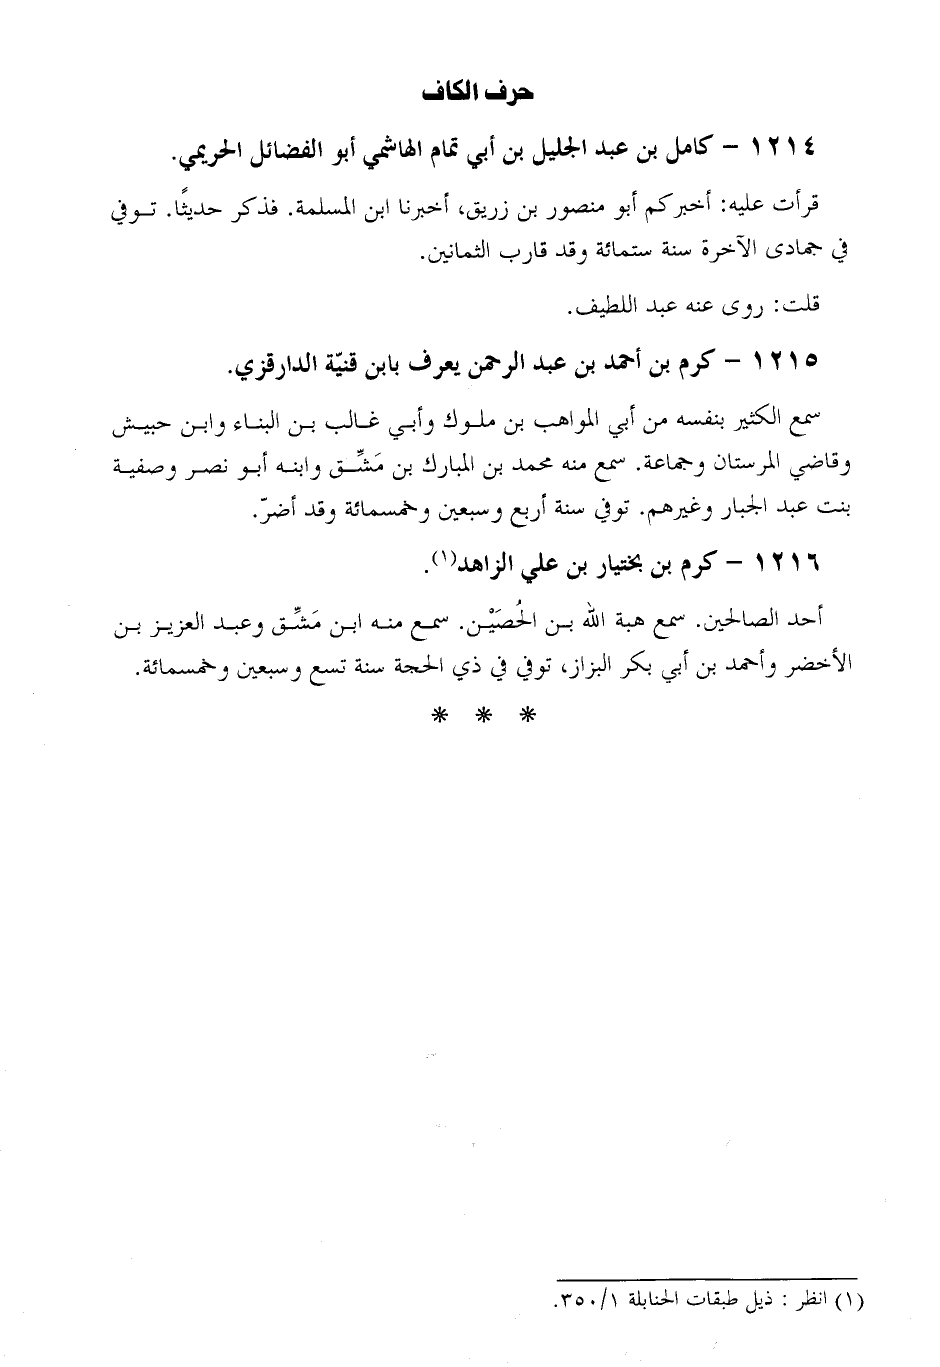 حرف الكاف
١٢١٤ - كامل بن عبد الجليل بن أبي تمام الهاشمي أبو الفضائل الحريمي.
قرأت عليه: أخبركم أبو منصور بن زريق، أخبرنا ابن المسلمة. فذكر حديثًا. توفي
في جمادى الآخرة سنة ستمائة وقد قارب الثمانين.
قلت: روى عنه عبد اللطيف.
١٢١٥ - كرم بن أحمد بن عبد الرحمن يعرف بابن قنيّة الدارقزي.
سمع الكثير بنفسه من أبي المواهب بن ملوك وأبي غالب بن البناء وابن حبيش
وقاضي المرستان وجماعة. سمع منه محمد بن المبارك بن مَشِّق وابنه أبو نصر وصفية
بنت عبد الجبار وغيرهم. توفي سنة أربع وسبعين وخمسمائة وقد أضرّ.
١٢١٦ - كرم بن بختيار بن علي الزاهد(١).
أحد الصالحين. سمع هبة الله بن الحُصَيْن. سمع منه ابن مَشِّق وعبد العزيز بن
الأخضر وأحمد بن أبي بكر البزاز، توفي في ذي الحجة سنة تسع وسبعين وخمسمائة.
* * *
(١) انظر : ذيل طبقات الحنابلة ٣٥٠/١.